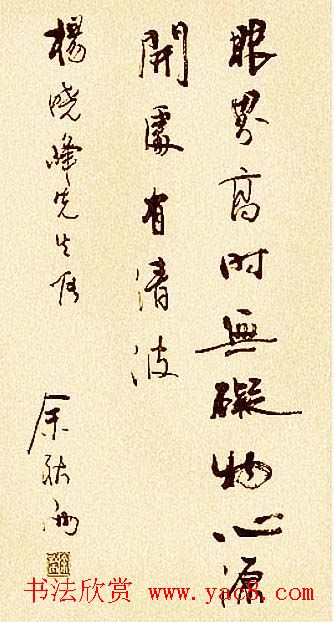 眼界高时無礙物心源
開處有清波
楊晓峰先生
余秋雨
书法欣赏 www.yac8.com